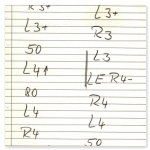 R3+
L3+
50
L4↑
80
L4
R4
L3+
R3
L3
LE R4-
R4
L4
50